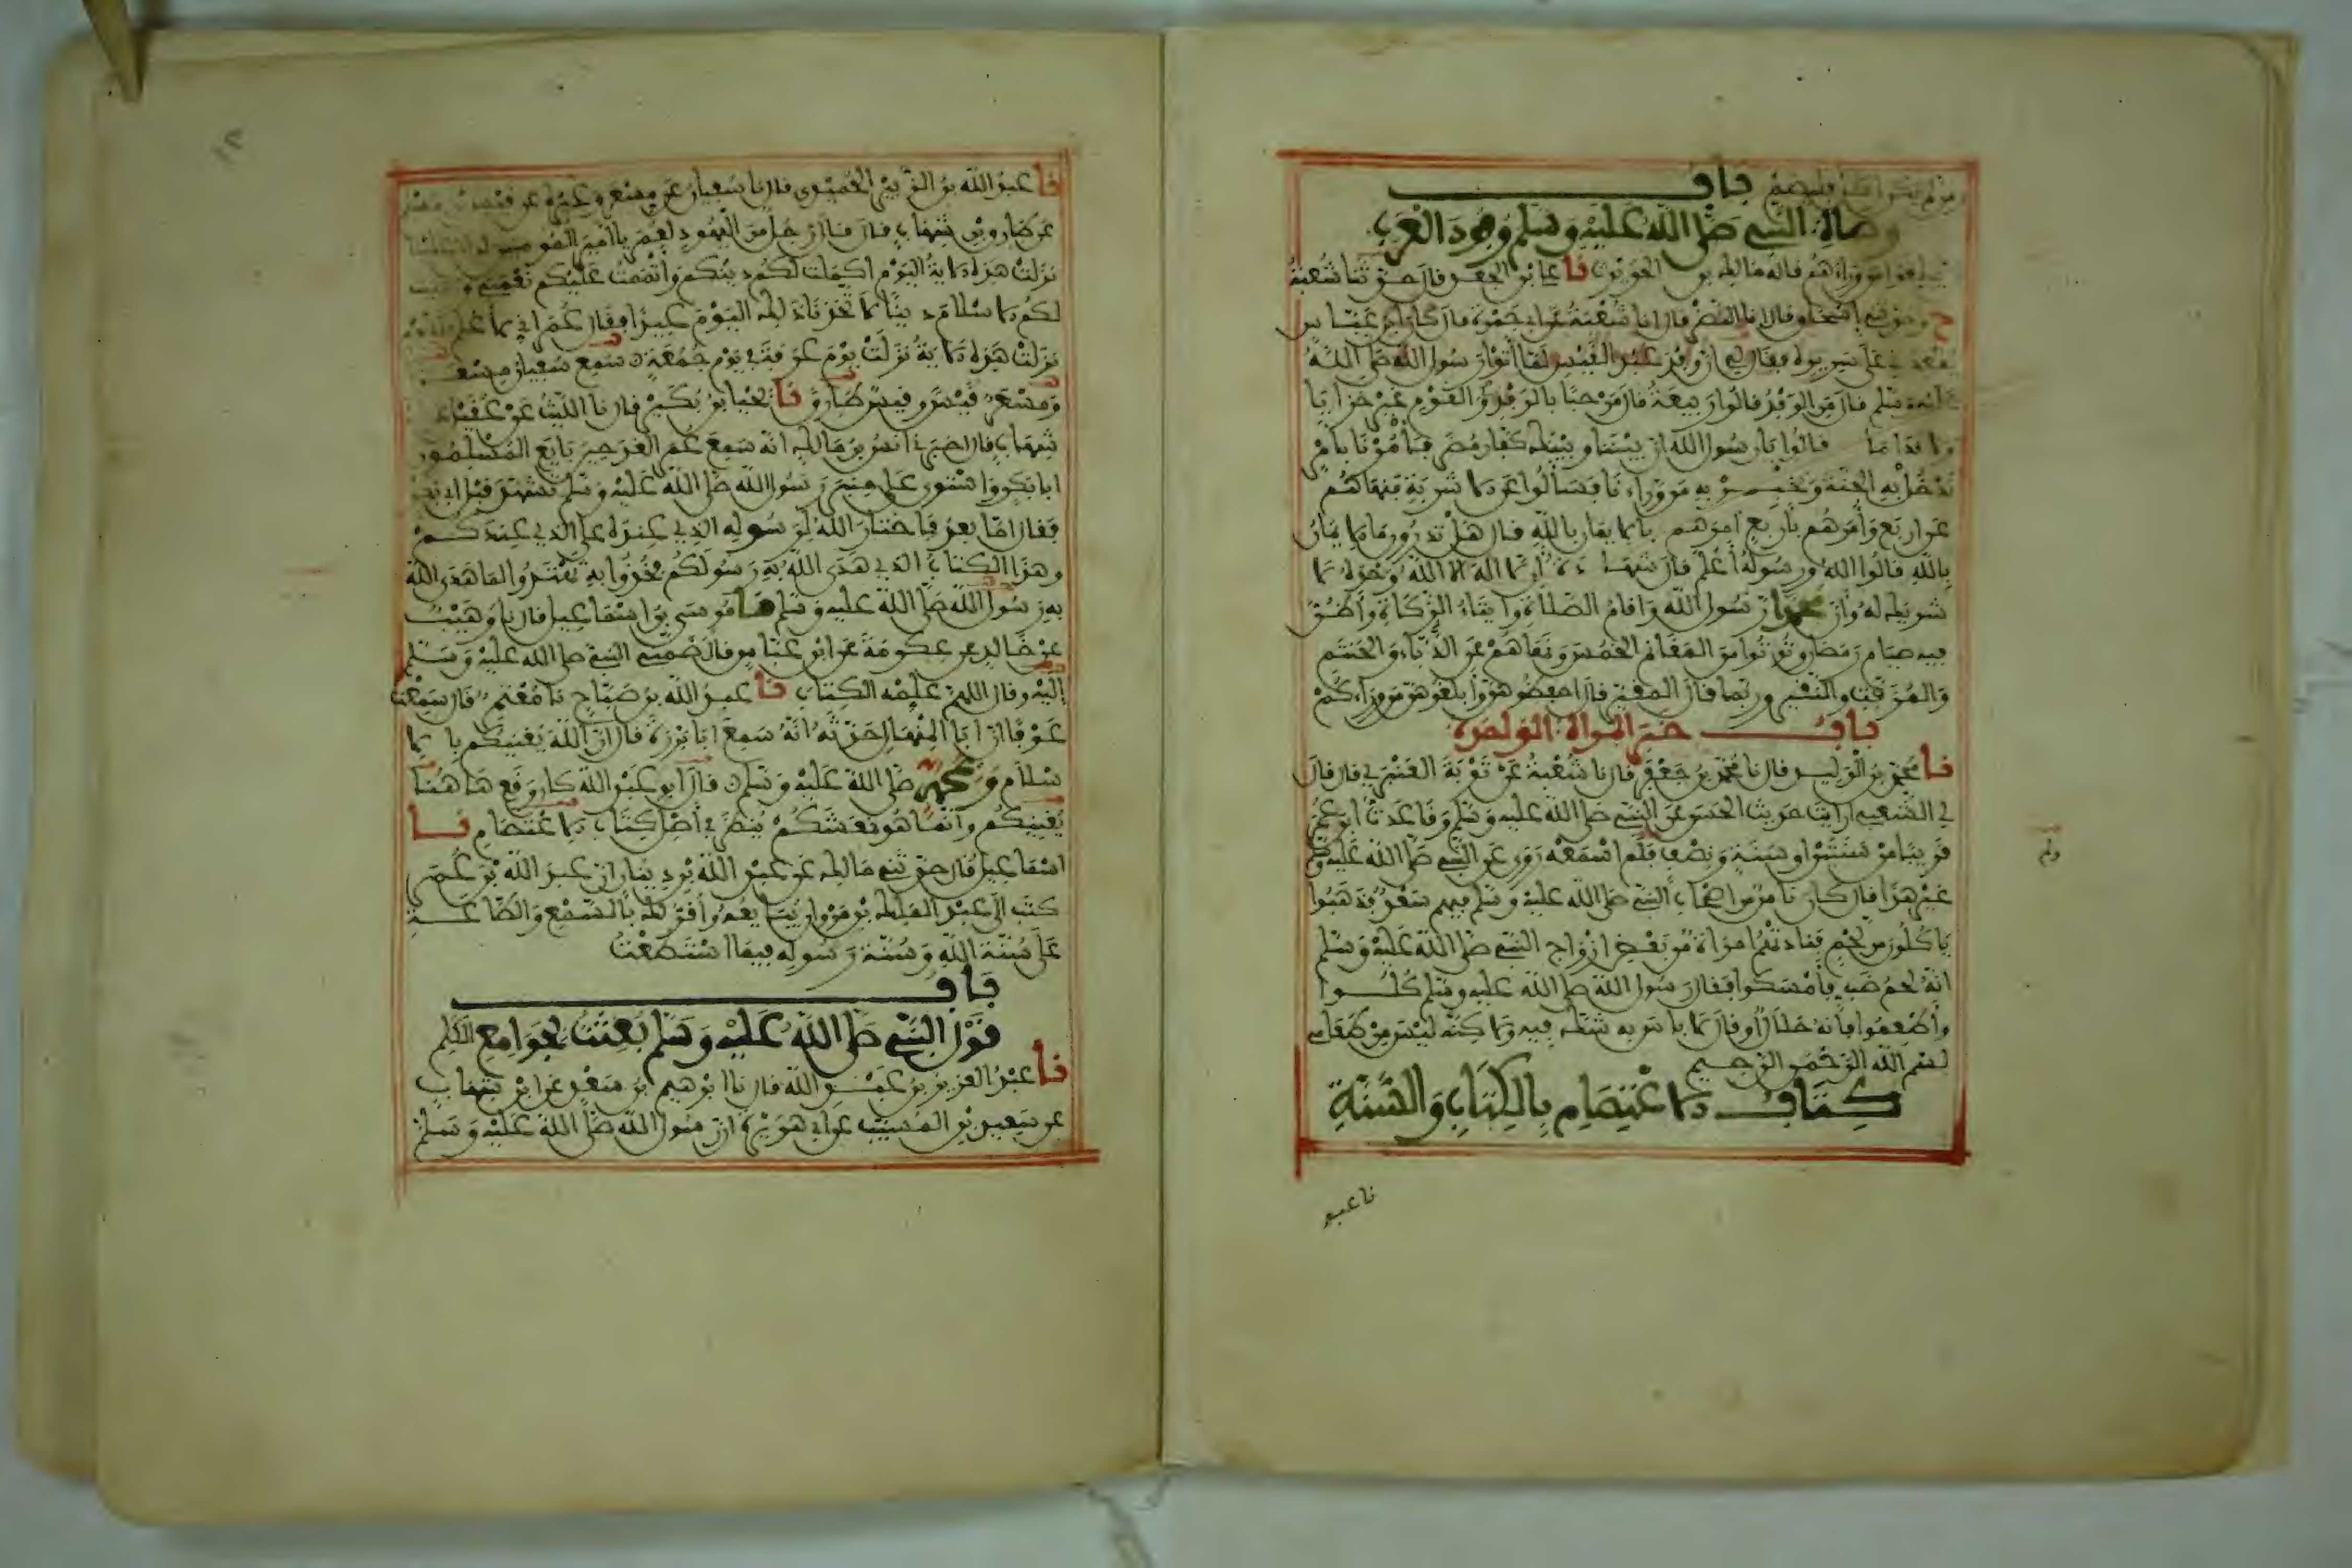 باب
وصاة النبي صلى الله عليه وسلم وفود العرب
ان يبلغوا من وراءهم قاله مالك بن الحويرث نا علي بن الجعد قال حدثنا شعبة
ح وحدثني اسحاق قال انا النضر قال انا شعبة عن ابي جمرة قال كان ابن عباس
يقعدني على سريره فقال لي ان وفد عبد القيس لما اتوا رسول الله صلى الله
عليه وسلم قال من الوفد قالوا ربيعة قال مرحبا بالوفد والقوم غير خزايا
ولا ندامى قالوا يا رسول الله ان بيننا وبينك كفار مضر فأمرنا بأمر
ندخل به الجنة ونخبر به من وراءنا فسألوا عن الاشربة فنهاهم
عن اربع وأمرهم بأربع أمرهم بالايمان بالله قال هل تدرون ما الايمان
بالله قالوا الله ورسوله أعلم قال شهادة أن لا اله الا الله وحده لا
شريك له وأن محمدا رسول الله واقام الصلاة وايتاء الزكاة وأظن
فيه صيام رمضان وتوتوا من المغانم الخمس ونهاهم عن الدباء والحنتم
والمزفت والنقير وربما قال المقير قال احفظوهن وأبلغوهن من وراءكم
باب خبر المرأة الواحدة
نا محمد بن الوليد قال نا محمد بن جعفر قال نا شعبة عن توبة العنبري قال قال
لي الشعبي ارايت حديث الحسن عن النبي صلى الله عليه وسلم وقاعدت ابن عمر
قريبا من سنتين او سنة ونصف فلم اسمعه روى عن النبي صلى الله عليه وسلم
غير هذا قال كان ناس من اصحاب النبي صلى الله عليه وسلم فيهم سعد فذهبوا
ياكلون من لحم فنادتهم امرأة من بعض ازواج النبي صلى الله عليه وسلم
انه لحم ضب فأمسكوا فقال رسول الله صلى الله عليه وسلم كلوا
وأطعموا فانه حلال أو قال لا باس به شك فيه ولاكنه ليس من طعامي
بسم الله الرحمن الرحيم
كتاب الاعتصام بالكتاب والسنة
نا عبد
نا عبد الله بن الزبير الحميدي قال نا سفيان عن مسعر وغيره عن قيس بن مسلم
عن طارق بن شهاب قال قال رجل من اليهود لعمر يا امير المومنين لو ان علينا
نزلت هذه الاية اليوم اكملت لكم دينكم وأتممت عليكم نعمتي ورضيت
لكم الاسلام دينا لاتخذنا ذلك اليوم عيدا فقال عمر اني لا علم اي يوم
نزلت هذه الاية نزلت يوم عرفة في يوم جمعة سمع سفيان مسعر
ومسعر قيسا وقيس طارقا نا يحيى بن بكير قال نا الليث عن عقيل عن
شهاب قال اخبرني انس بن مالك انه سمع عمر الغد حين بايع المسلمون
ابا بكر واستوى على منبر رسول الله صلى الله عليه وسلم تشهد قبل ابي بكر
فقال اما بعد فاختار الله لرسوله الذي عنده على الذي عندكم
وهذا الكتاب الذي هدى الله به رسولكم فخذوا به تهتدوا لما هدى الله
به رسول الله صلى الله عليه وسلم نا موسى بن اسماعيل قال نا وهيب
عن خالد عن عكرمة عن ابن عباس قال ضمني النبي صلى الله عليه وسلم
اليه وقال اللهم علمه الكتاب نا عبد الله بن صباح نا معتمر قال سمعت
عوفا ان ابا المنهال حدثه انه سمع ابا برزة قال ان الله يغنيكم بالا
سلام وبمحمد صلى الله عليه وسلم قال ابو عبد الله كان وقع هاهنا
يغنيكم وانما هو نعشكم ينظر في أصل كتاب الاعتصام نا
اسماعيل قال حدثني مالك عن عبد الله بن دينار ان عبد الله بن عمر
كتب الى عبد الملك بن مروان يبايعه وأقر لك بالسمع والطاعة
على سنة الله وسنة رسوله فيما استطعت
باب
قول النبي صلى الله عليه وسلم بعثت بجوامع الكلم
نا عبد العزيز بن عبد الله قال نا ابرهيم بن سعد عن ابن شهاب
عن سعيد بن المسيب عن ابي هريرة ان رسول الله صلى الله عليه وسلم